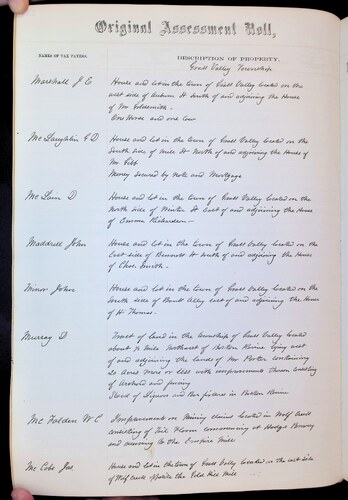 Original Assessment Roll,
NAMES OF TAX PAYERS.
DESCRIPTION OF PROPERTY.
Grass Valley Township
Marshall J. C. House and lot in the town of Grass Valley located on the
west side of Auburn St South of and adjoining the House
of Mr Goldsmith.
One Horse and one Cow
McLaughlin G D House and lot in the town of Grass Valley located on the
South side of Mill St North of and adjoining the House of
Mr
Money secured by Note and Mortgage
McLain D House and lot in the town of Grass Valley located on the
North side of St East of and adjoining the House
of Richardson
Maddrell John House and lot in the town of Grass Valley located on the
East side of Bennett St North of and adjoining the House
of Chas. Smith.
Minor John House and lot in the town of Grass Valley located on the
South side of Bank Alley East of and adjoining the House
of H. Thomas.
Murray D Tract of land in the township of Grass Valley located
about ½ mile Northwest of Ravine lying west
of and adjoining the lands of Mr Porter containing
20 acres more or less with improvements thereon consisting
of orchard and fencing
Stock of Liquors and Bar fixtures in Ravine
McFadden W C Improvement on Mining claims located in Wolf Creek
consisting of Tail Flume commencing at Hodges Brewery
and running to the Empire Mill
McCobe Jas. House and lot in the town of Grass Valley located on the west side
of Wolf Creek opposite the Gold Hill Mill